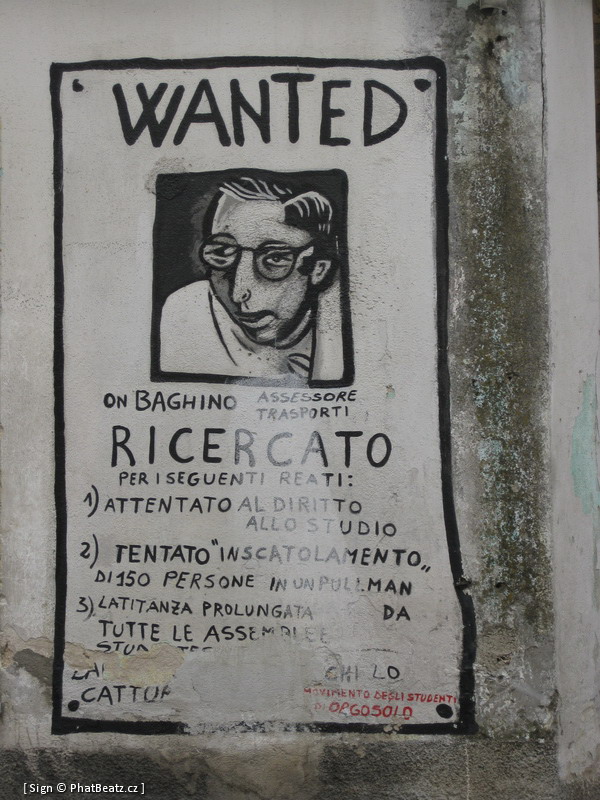 WANTED
ON BAGHINO ASSESSORE
TRASPORTI
RICERCATO
PER I SEGUENTI REATI:
1) ATTENTATO AL DIRITTO
ALLO STUDIO
2) TENTATO "INSCATOLAMENTO„
DI 150 PERSONE IN UN PULLMAN
3) LATITANZA PROLUNGATA DA
TUTTE LE
CHI LO
MOVIMENTO DEGLI STUDENTI
DI ORGOSOLO
[ Sign © PhatBeatz.cz ]